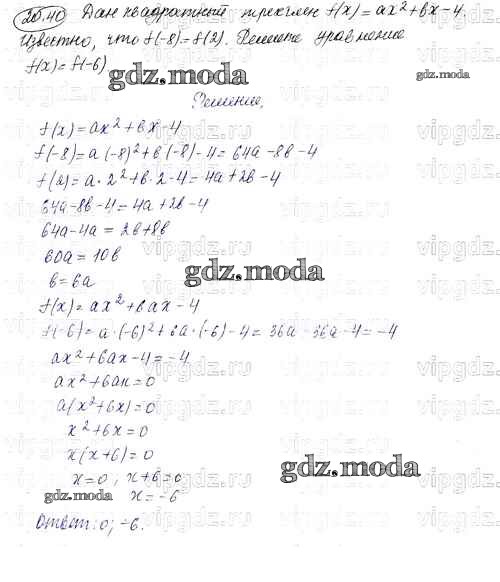 20.40 Дан квадратный трехчлен f(x)=ax²+bx-4.
Известно, что f(-8)=f(2). Решите уравнение
f(x)=f(-6)
gdz.moda
gdz.moda
Решение.
f(x)=ax²+bx-4
f(-8)=a(-8)²+b(-8)-4=64a-8b-4
f(2)=a·2²+b·2-4=4a+2b-4
64a-8b-4=4a+2b-4
64a-4a=2b+8b
60a=10b
b=6a
gdz.moda
f(x)=ax²+6ax-4
f(-6)=a·(-6)²+6a·(-6)-4=36a-36a-4=-4
ax²+6ax-4=-4
ax²+6ax=0
a(x²+6x)=0
x²+6x=0
x(x+6)=0
gdz.moda
x=0, x+6=0
gdz.moda
x=-6
Ответ: 0; -6.
vipgdz.ru